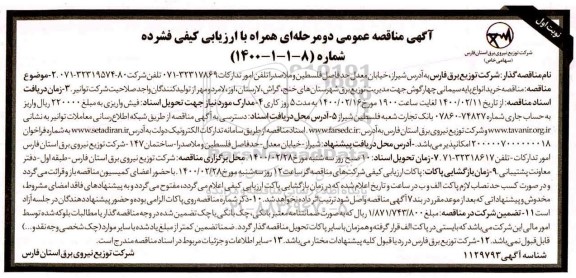 نوبت اول
آگهی مناقصه عمومی دومرحله‌ای همراه با ارزیابی کیفی فشرده
شماره (۸-۱-۱-۱۴۰۰)
شرکت توزیع نیروی برق استان فارس
(سهامی خاص)
نام مناقصه گذار: شرکت توزیع برق فارس به آدرس شیراز، خیابان معدل، حدفاصل فلسطین و ملاصدرا تلفن امور تدارکات ۳۲۳۱۷۸۶۹-۰۷۱ تلفن شرکت ۸۰-۳۲۳۱۹۵۷۴-۰۷۱ ۲-موضوع
مناقصه: خرید انواع پایه سیمانی چهارگوش جهت مدیریت توزیع برق شهرستان های خنج، گراش، لارستان، اوز، لامرد و مهر از تولیدکنندگان واجد صلاحیت شرکت توانیر. ۳-زمان دریافت
اسناد مناقصه: از تاریخ ۱۴۰۰/۰۲/۱۱ لغایت ساعت ۱۹:۰۰ مورخ ۱۴۰۰/۰۲/۱۶ به مدت ۵ روز کاری ۴-مدارک مورد نیاز جهت تحویل اسناد: فیش واریزی به مبلغ ۲۲۰۰۰۰ ریال واریز
به حساب جاری شماره ۰۷۸۶۰۰۷۴۸۲۷ بانک تجارت شعبه فلسطین شیراز ۵-آدرس محل دریافت اسناد: دسترسی به آگهی مناقصه از طریق شبکه اطلاع رسانی معاملات توانیر به نشانی
www.tavanir.org.ir و شرکت توزیع برق فارس به آدرس www.farsedc.ir اسناد مناقصه از طریق سامانه تدارکات الکترونیک دولت به آدرس www.setadiran.ir به شماره فراخوان
۲۰۰۰۰۰۷۰۰۰۰۰۰۰۱۸ امکانپذیر می باشد. ۶-آدرس محل دریافت پیشنهاد: شیراز- خیابان معدل- حدفاصل فلسطین و ملاصدرا- ساختمان ۱۴۷- شرکت توزیع نیروی برق استان فارس
امور تدارکات- تلفن ۳۲۳۱۸۶۱۷-۰۷۱ ۷-زمان تحویل اسناد: ۱۰:۰۰ صبح روز سه شنبه مورخ ۱۴۰۰/۰۲/۲۸ ۸-محل برگزاری مناقصه: شرکت توزیع نیروی برق استان فارس- طبقه اول- دفتر
معاونت پشتیبانی ۹-زمان بازگشایی پاکات: پاکات ارزیابی کیفی شرکت های مناقصه گر ساعت ۱۲ روز سه شنبه مورخ ۱۴۰۰/۰۲/۲۸ با حضور اعضای کمیسیون مناقصه باز و قرائت می گردد
و در صورت کسب حد نصاب لازم پاکت الف و ب در ساعت و تاریخ اعلام شده در زمان بازگشایی پاکات ارزیابی کیفی اعلام می گردد، مفتوح می گردد و به پیشنهادهای فاقد امضای مشروط،
مخدوش و پیشنهاداتی که بعد از موعد مقرر در بند ۷ آگهی مناقصه واصل شود ترتیب اثر داده نخواهد شد. ۱۰-ذکر شماره مناقصه روی پاکات الزامی بوده و حضور پیشنهاددهندگان در جلسه آزاد
است ۱۱-تضمین شرکت در مناقصه: مبلغ ۱/۸۷۱/۷۴۳/۸۰۰ ریال که به صورت ضمانتنامه بانکی، چک بانکی یا چک تضمین شده در وجه مناقصه گذار یا مطالبات بلوکه شده توسط
امور مالی این شرکت می باشد که بایستی در پاکت الف قرار گرفته و همزمان با سایر پاکات تحویل مناقصه گذار گردد. ضمنا تضمین کمتر از مبلغ یاد شده یا سایر موارد (چک شخصی، وجه نقد و...)
قابل قبول نمی باشد. ۱۲-شرکت توزیع برق فارس در رد یا قبول کلیه پیشنهادات مختار می باشد. ۱۳-سایر اطلاعات و جزئیات مربوط در اسناد مناقصه مندرج است.
شناسه آگهی ۱۱۲۹۷۹۳
شرکت توزیع نیروی برق استان فارس